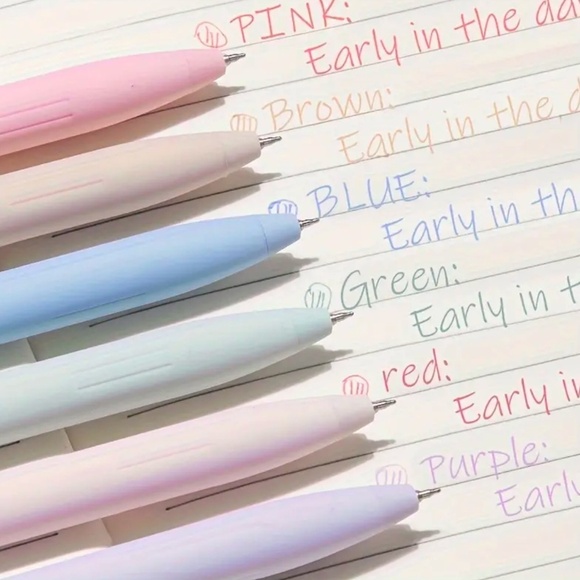 PINK:
Early in the da
Brown:
Early in the d
BLUE:
Early in th
Green:
Early in t
red:
Early in
Purple:
Early